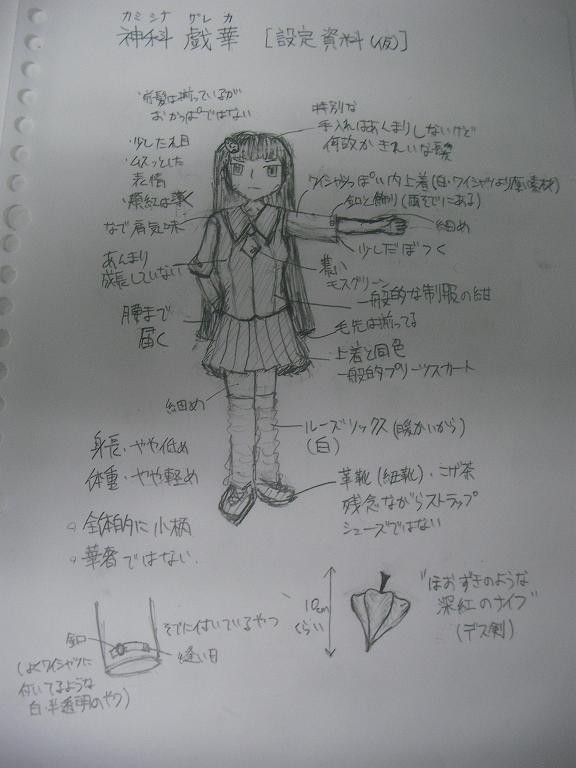 カミシナ グレカ
神科 戯華 [設定資料(仮)]
・前髪は揃っているが
おかっぱではない
特別な
手入れはあんまりしないけど
何故かきれいな髪
・少したれ目
・ムスッとした
表情
・頬紅は薄く
ワイシャツっぽい内上着(白・ワイシャツより厚い素材)
釦と飾り(両そでにある)
細め
なで肩気味
少しだぼつく
あんまり
成長していない
濃い
モスグリーン
一般的な制服の紺
腰まで
届く
毛先は揃ってる
上着と同色
一般的プリーツスカート
細め
ルーズソックス(暖かいから)
(白)
身長・やや低め
体重・やや軽め
革靴(紐靴)・こげ茶
残念ながらストラップ
シューズではない
○全体的に小柄
○華奢ではない
そでに付いているやつ
釦
縫い目
(よくワイシャツに
付いてるような
白・半透明のヤツ)
10cm
くらい
"ほおずきのような
深紅のナイフ"
(デス剣)